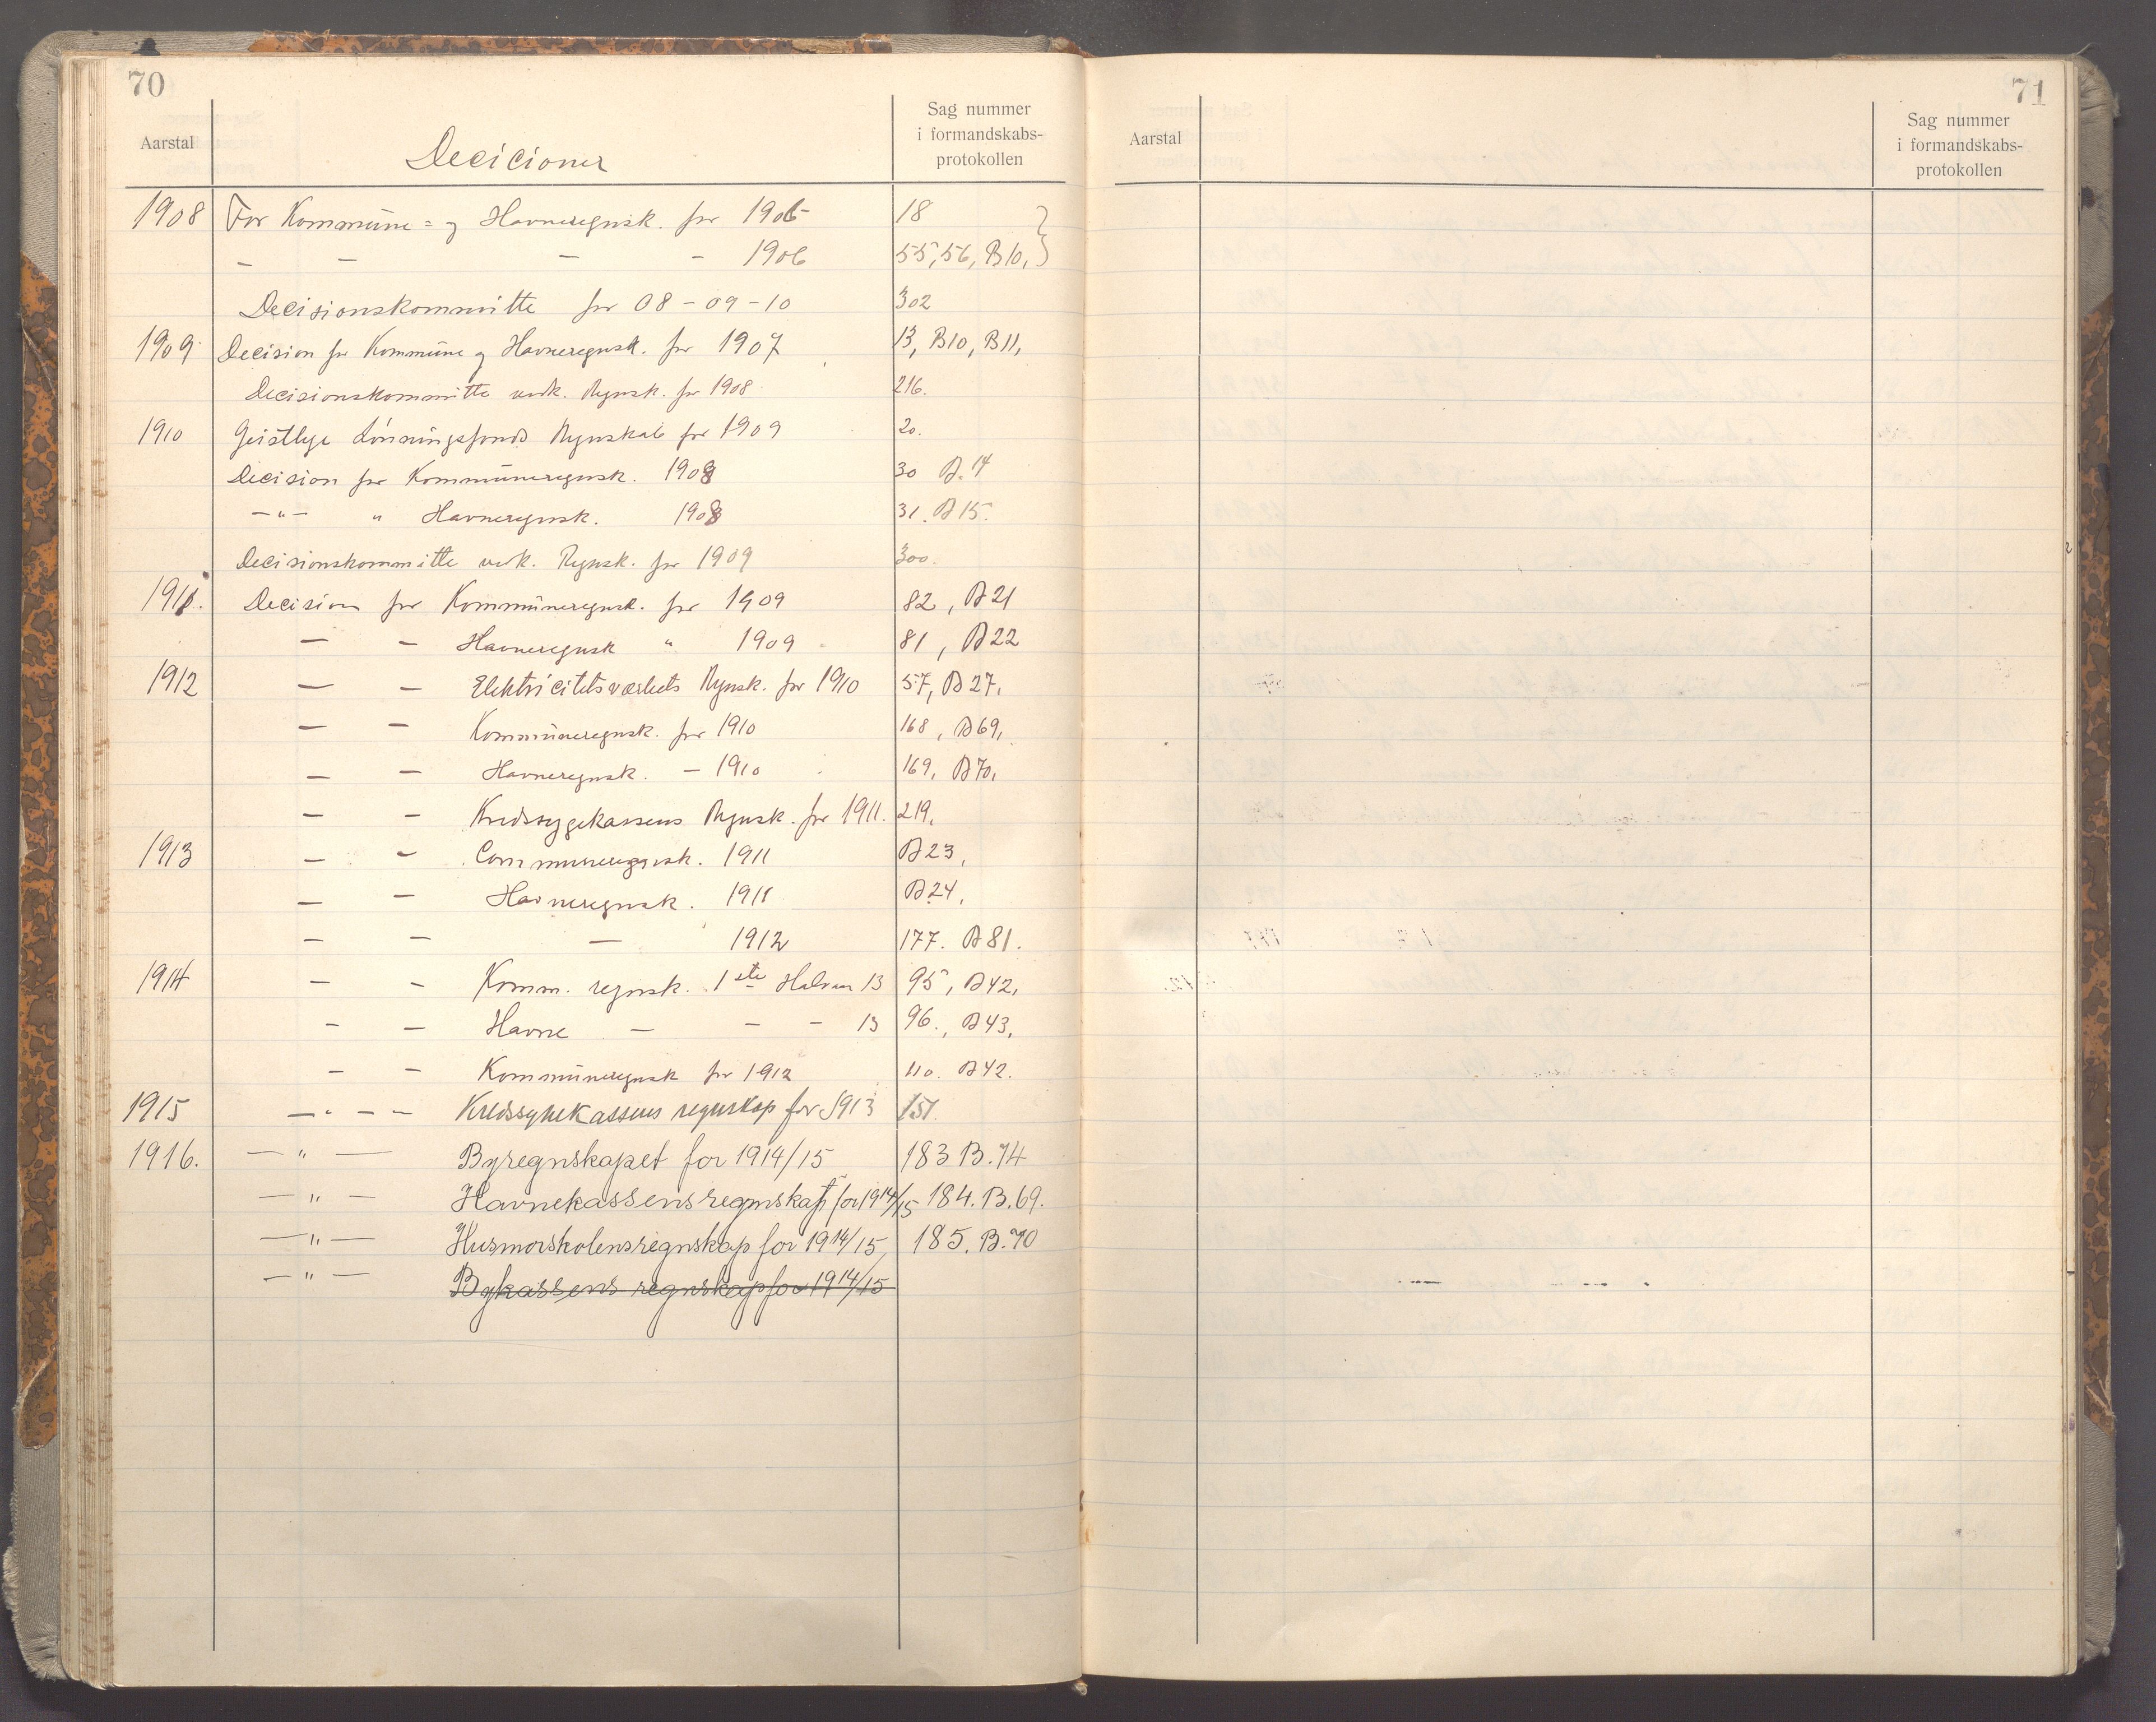 70
Aarstal
Decicioner
Sag nummer
i formandskabs-
protokollen
1908 For Kommune= og Havneregnsk. for 1905 18
— — — — 1906 55, 56, B10,
Decisionskommitte for 08 – 09 – 10 302
1909 Decision for Kommune og Havneregnsk. for 1907 13, B10, B11,
Decisionskommitte vedk. Regnsk. for 1908 216.
1910 Geistlige Lønningsfonds Regnskab for 1909 20.
Decision for Kommuneregnsk. 1908 30 B.14
—"— " Havneregnsk. 1908 31. B15.
Decisionskommitte vedk. Regnsk. for 1909 300.
1911. Decision for Kommuneregnsk. for 1909 82, B21
— — Havneregnsk " 1909 81, B22
1912 — — Elektricitetsværkets Regnsk. for 1910 57, B27,
— — Kommuneregnsk. for 1910 168, B69,
— — Havneregnsk. — 1910 169, B70,
— — Kredssygekassens Regnsk. for 1911. 219,
1913 — — Communeregnsk. 1911 B23,
— — Havneregnsk. 1911 B24,
— — — 1912 177. B81.
1914 — — Komm. regnsk. 1ste Halvaar 13 95, B42,
— — Havne — — — 13 96., B43,
— — Kommuneregnsk for 1912 110. B42.
1915 —"— — Kredssykekassens regnskap for 1913 151.
1916. —"— Byregnskapet for 1914/15 183 B.74
—"— Havnekassens regnskap for 1914/15 184. B.69.
—"— Husmorskolens regnskap for 1914/15 185. B.70
—"— Bykassens regnskap for 1914/15
71
Aarstal
Sag nummer
i formandskabs-
protokollen